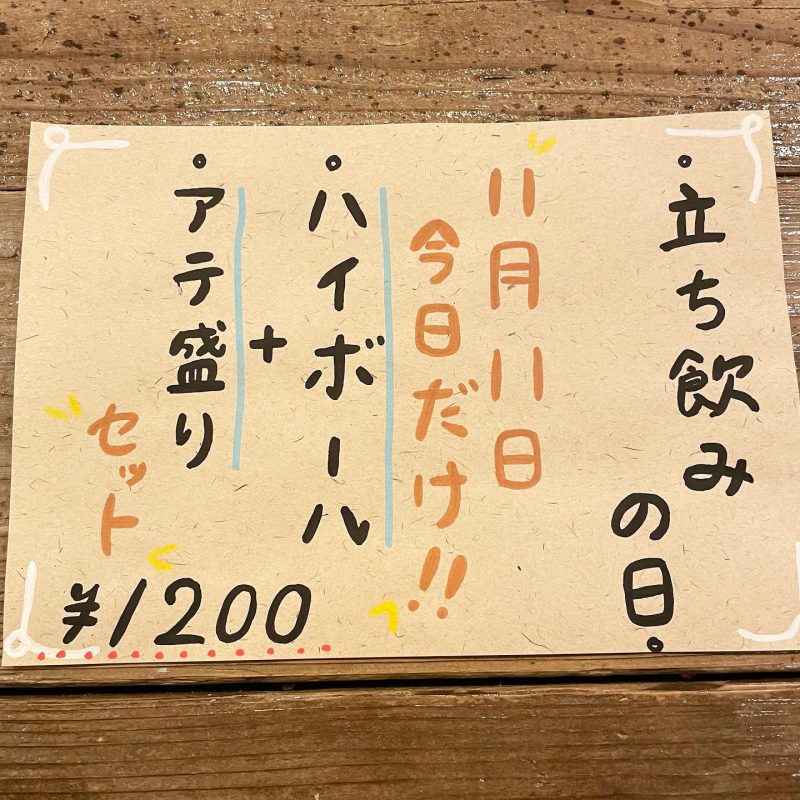 ・立ち飲みの日・
11月11日
今日だけ!!
・ハイボール
+
・アテ盛り
セット
¥1200